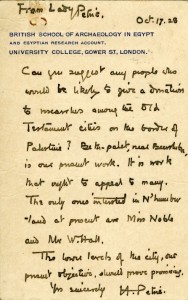 From Lady Petrie.
Oct. 17. 28
BRITISH SCHOOL OF ARCHAEOLOGY IN EGYPT
AND EGYPTIAN RESEARCH ACCOUNT,
UNIVERSITY COLLEGE, GOWER ST., LONDON.
Can you suggest any people who
would be likely to give a donation
to researches among the Old
Testament cities on the border of
Palestine? Beth-palet, near Beersheba,
is our present work. It is work
that ought to appeal to many.
The only ones interested in N'humber
land at present are Miss Noble
and Mr W. Hall.
The lower levels of the city, our
present objective, should prove promising.
Yrs sincerely H. Petrie.